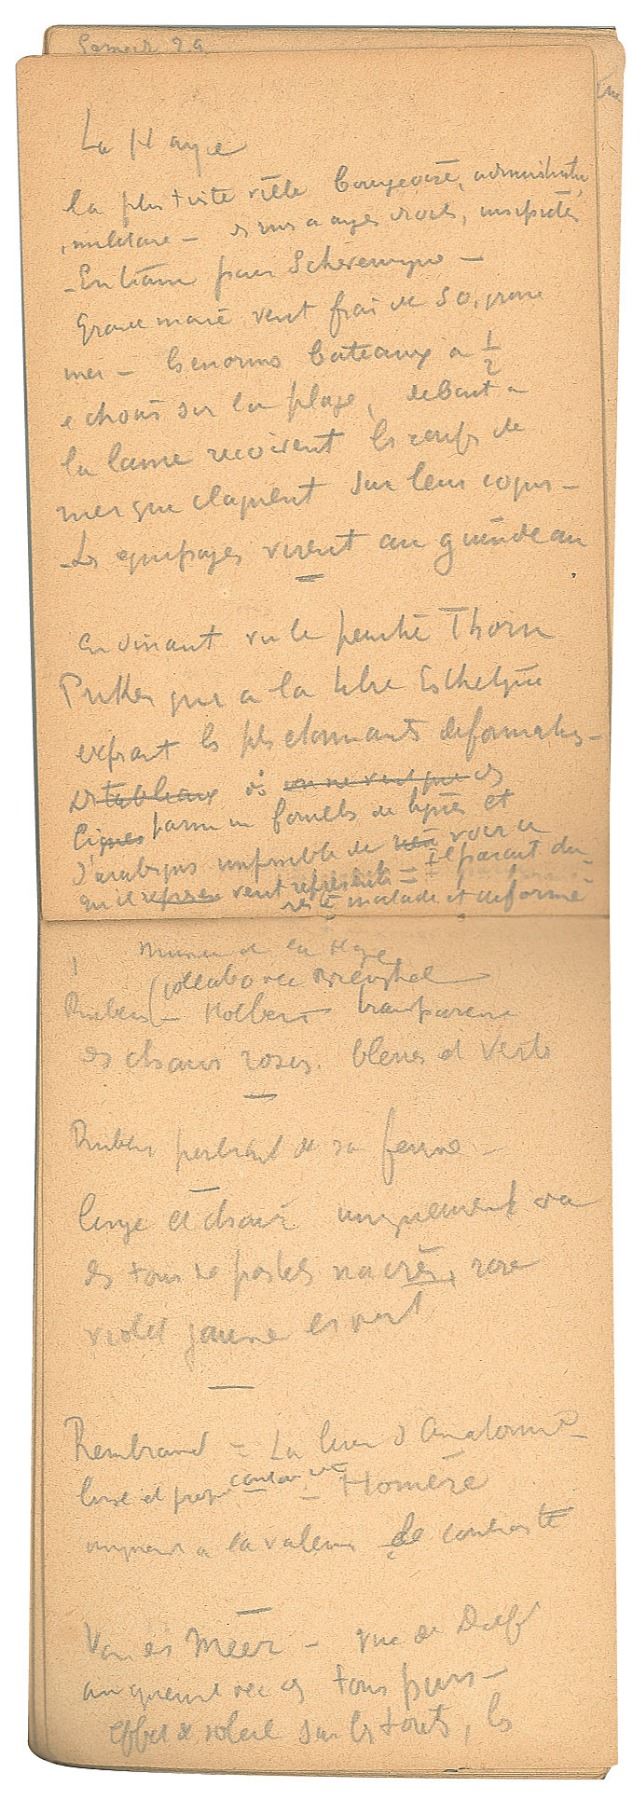 Samedi 29
La Haye
la plus triste ville bourgeoise, administrative,
militaire – des rues a anges droits, insipides
– En tram pour Scheveningue –
Grande marée vent frais de SO, grosse
mer – les enormes bateaux a 1/2
echoués sur la plage, debout a
la lame recoivent les coups de
mer qui claquent sur leur coque –
– Les equipages virent au guindeau
–
en dinant vu le peintre Thorn
Priker qui a la libre Esthetique
exposait les plus etonnantes deformations –
des tableaux où on ne voit que des
lignes parmi un fouillis de lignes et
d'arabesques impossible de rien voir ce
qu'il veut représenter = Il parait du
reste malade et deformé
Musée de La Haye
(collabore Brueghel
Rubens – Holbein transparence
des chairs roses, bleues et vertes
–
Rubens portrait de sa femme –
linge et chair uniquement
des tons de pastels nacrés, rose
violet jaune et vert
–
Rembrand = La lecon d'Anatomie
– Homère
uniquement a la valeur de contraste
–
Van der Meer – vue de Delft
uniquement avec des tons purs –
effet de soleil sur les toits, les